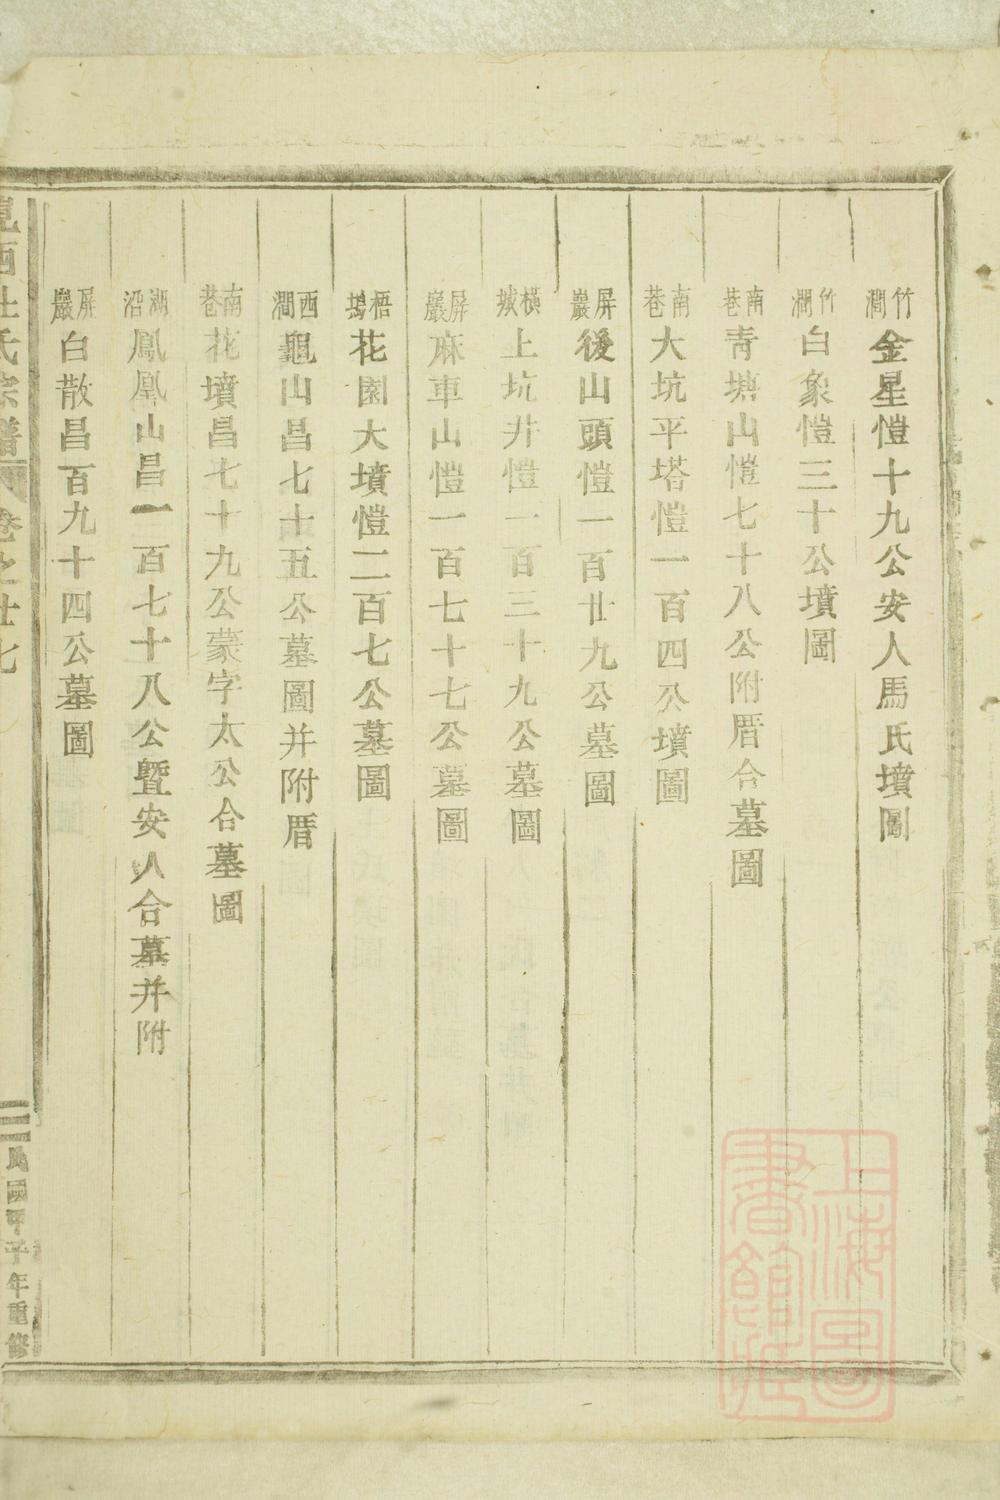 竹澗金星愷十九公安人馬氏墳圖
竹澗白象愷三十公墳圖
南巷青塘山愷七十八公附厝合墓圖
南巷大坑平塔愷一百四公墳圖
屏巖後山頭愷一百廿九公墓圖
橫城上坑井愷一百三十九公墓圖
屏巖麻車山愷一百七十七公墓圖
梧塢花園大墳愷二百七公墓圖
西澗龜山昌七十五公墓圖并附厝
南巷花墳昌七十九公蒙字太公合墓圖
湖沿鳳凰山昌一百七十八公暨安人合墓并附
屏巖白散昌百九十四公墓圖
西杜氏宗譜 卷之廿七 民國甲子年重修
上海圖書館藏